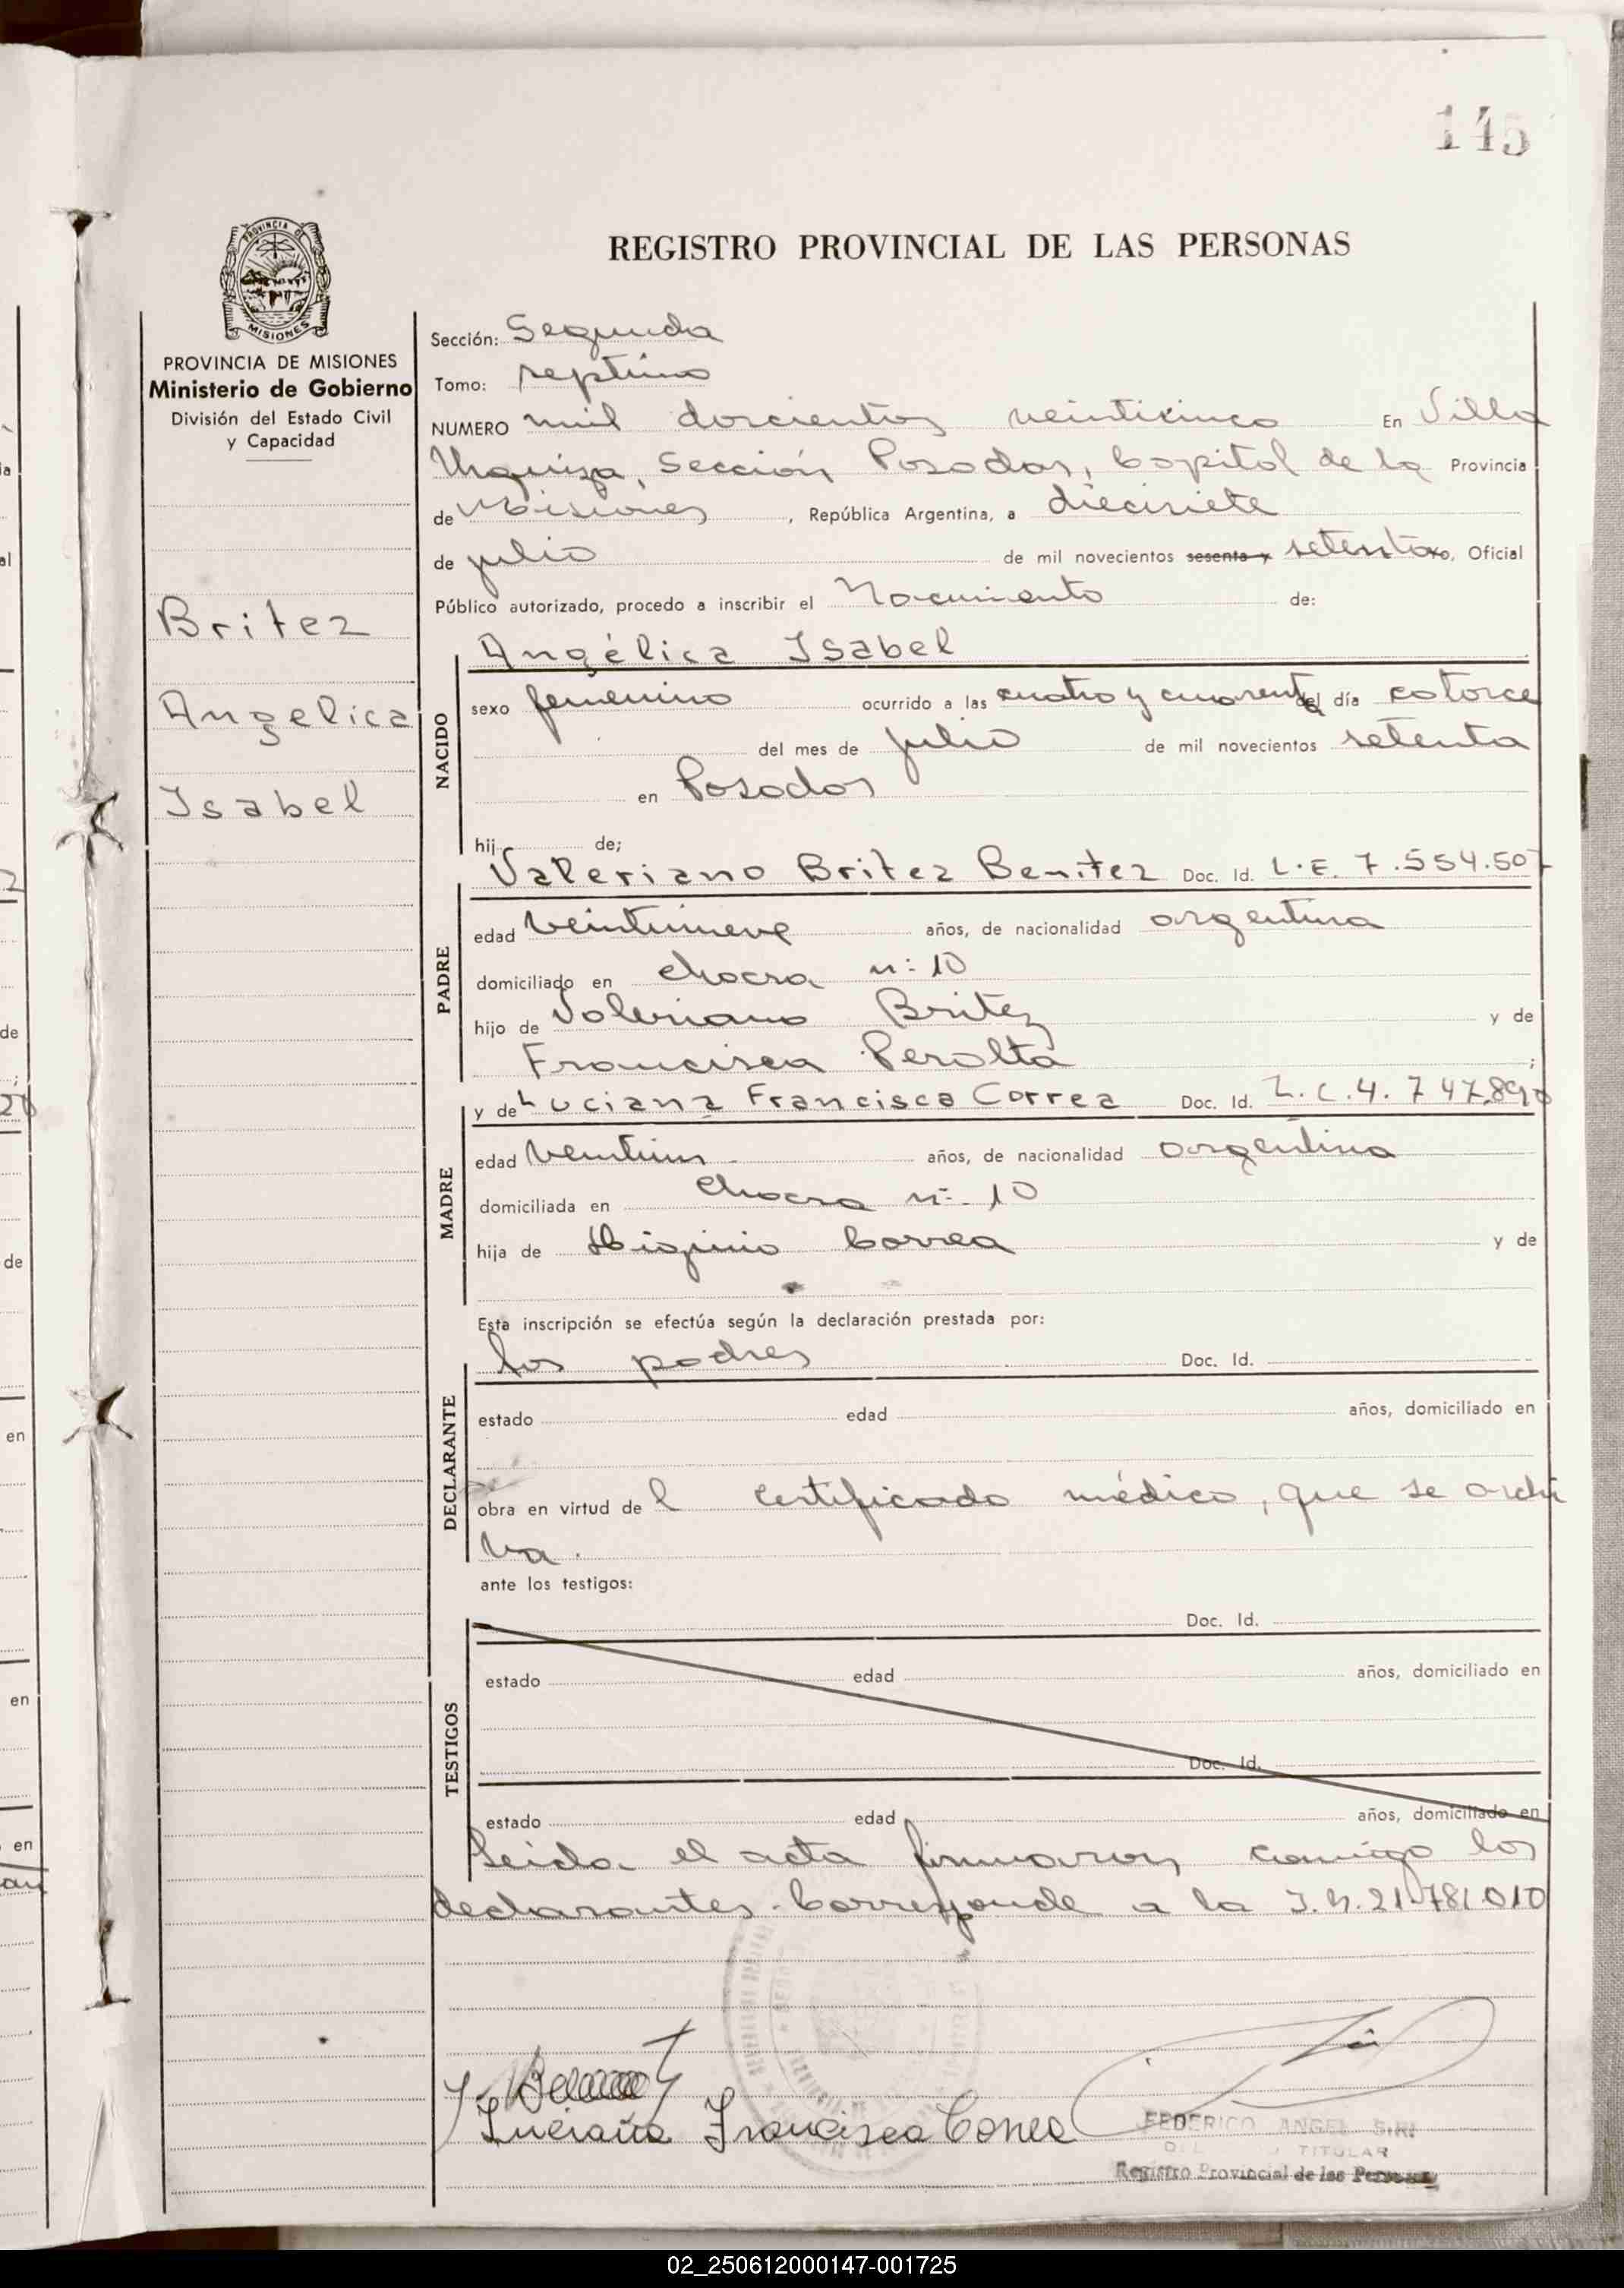 145
PROVINCIA DE MISIONES
REGISTRO PROVINCIAL DE LAS PERSONAS
PROVINCIA DE MISIONES
Ministerio de Gobierno
División del Estado Civil
y Capacidad
Britez
Angelica
Isabel
Sección: Segunda
Tomo: septimo
NUMERO mil doscientos veinticinco En Villa
Urquiza, Sección Posadas, Capital de la Provincia
de Misiones, República Argentina, a diecisiete
de julio de mil novecientos sesenta y setenta, Oficial
Público autorizado, procedo a inscribir el Nacimiento de:
NACIDO
Angélica Isabel
sexo femenino ocurrido a las cuatro y cuarenta del día catorce
del mes de julio de mil novecientos setenta
en Posadas
hij de;
PADRE
Valeriano Britez Benitez Doc. Id. L.E. 7.554.507
edad veintinueve años, de nacionalidad argentina
domiciliado en chacra nº 10
hijo de Valeriano Britez y de
Francisca Peralta ;
MADRE
y de Luciana Francisca Correa Doc. Id. L.C. 4.747.890
edad veintiun años, de nacionalidad argentina
domiciliada en chacra nº 10
hija de Higinio Correa y de
Esta inscripción se efectúa según la declaración prestada por:
DECLARANTE
los padres Doc. Id.
estado edad años, domiciliado en
obra en virtud del certificado médico, que se archi
va.
ante los testigos:
TESTIGOS
Doc. Id.
estado edad años, domiciliado en
Doc. Id.
estado edad años, domiciliado en
Leida el acta firmaron conmigo los
declarantes. Corresponde a la I.N. 21.781.010
Luciana Francisca Correa
FEDERICO ANGEL SIRI
TITULAR
Registro Provincial de las Personas
02_250612000147-001725